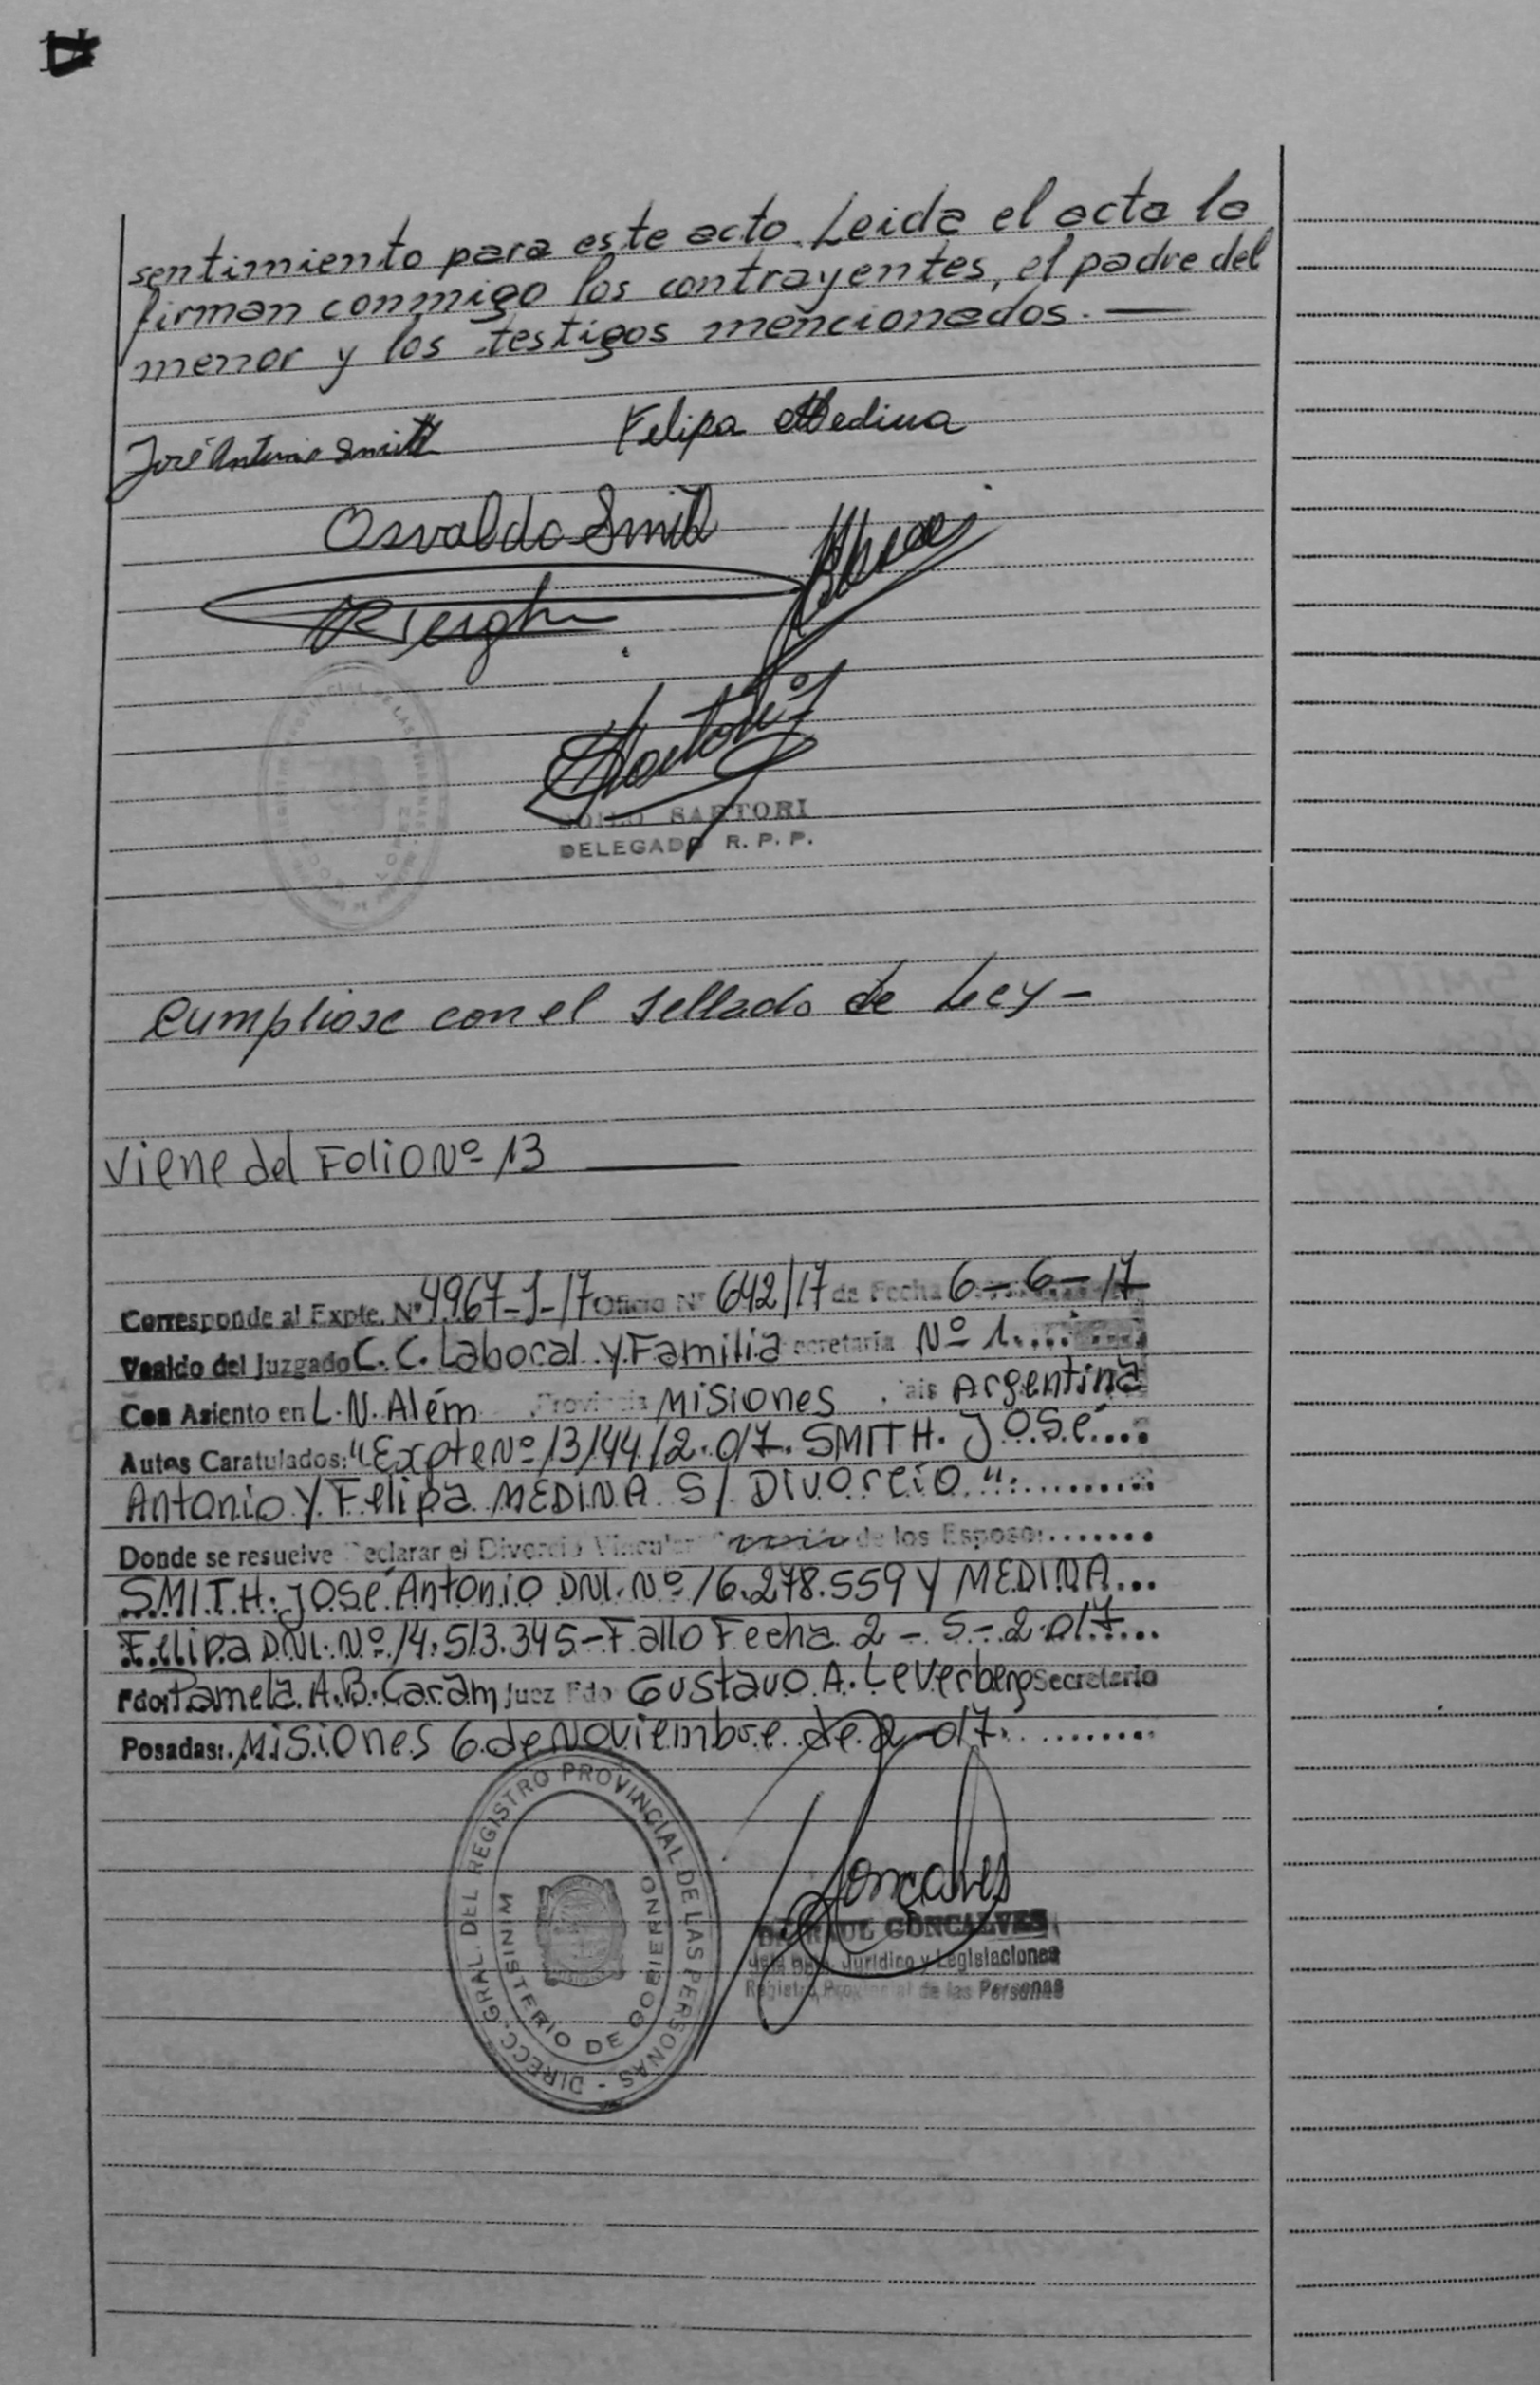 sentimiento para este acto. Leida el acta la
firman conmigo los contrayentes, el padre del
menor y los testigos mencionados. —
José Antonio Smith
Felipa Medina
Osvaldo Smith
SARTORI
DELEGADO R. P. P.
Cumpliose con el sellado de Ley -
Viene del Folio Nº 13
Corresponde al Expte. Nº 4967-J-17 Oficio Nº 642/17 de Fecha 6-6-17
Venido del Juzgado C. C. Laboral y Familia Secretaría Nº 1....
Con Asiento en L.N. Além Provincia Misiones País Argentina
Autos Caratulados: "Expte Nº 13144/2.017. SMITH. José....
Antonio y Felipa MEDINA S/ Divorcio":.........
Donde se resuelve Declarar el Divorcio Vincular de los Esposos:.......
SMITH. José Antonio DNI. Nº 16.278.559 y MEDINA...
Felipa DNI. Nº 14.513.345-Fallo Fecha 2-5-2.017....
Fdo: Pamela A.B. Caram Juez Fdo Gustavo A. Leverberg Secretario
Posadas: Misiones 6 de Noviembre de 2.017.........
DIRECC. GRAL. DEL REGISTRO PROVINCIAL DE LAS PERSONAS -
MINISTERIO DE GOBIERNO
Goncalves
RAUL GONCALVES
Jefe Dpto. Jurídico y Legislaciones
Registro Provincial de las Personas